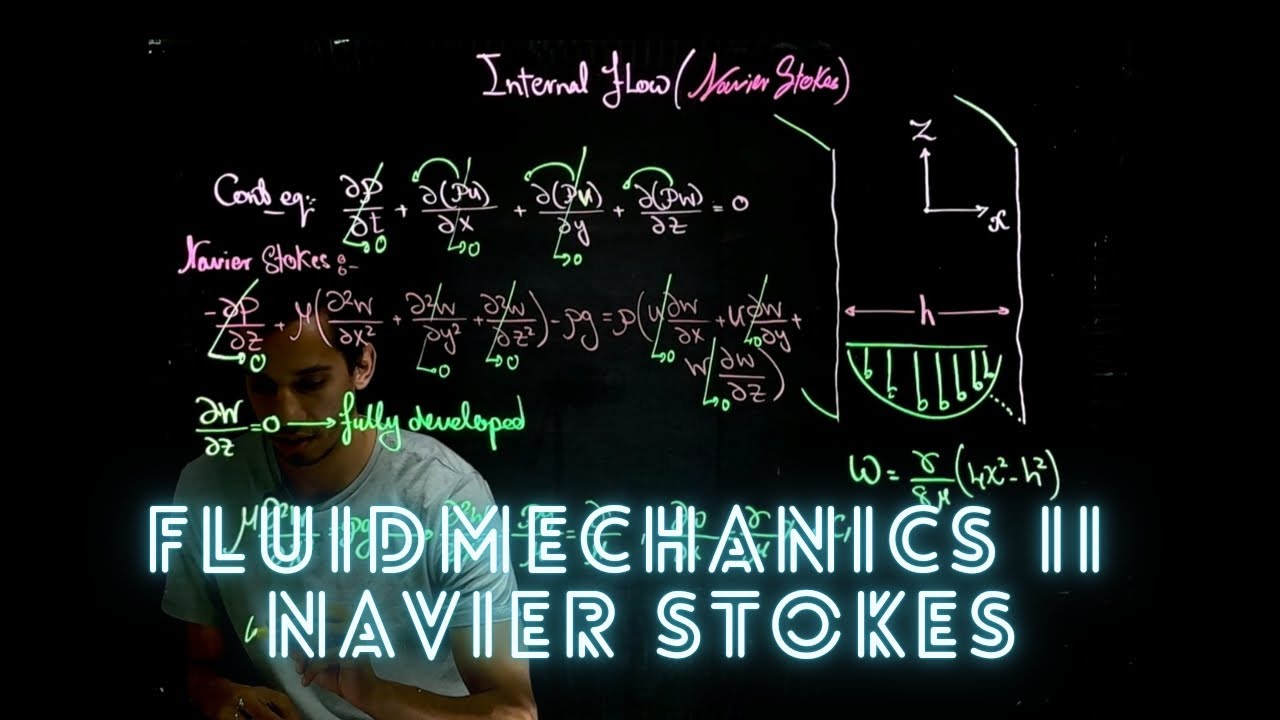 Internal flow (Navier Stokes)
Cont eq:- ∂ρ/∂t + ∂(ρu)/∂x + ∂(ρv)/∂y + ∂(ρw)/∂z = 0
→0 →0 →0
Navier Stokes:-
-∂P/∂z + μ(∂²w/∂x² + ∂²w/∂y² + ∂²w/∂z²) - ρg = ρ(u ∂w/∂x + υ ∂w/∂y +
w ∂w/∂z)
→0 →0 →0 →0 →0 →0
∂w/∂z = 0 → fully developed
z
x
h
w = γ/8μ (4x² - h²)
FLUID MECHANICS II
NAVIER STOKES